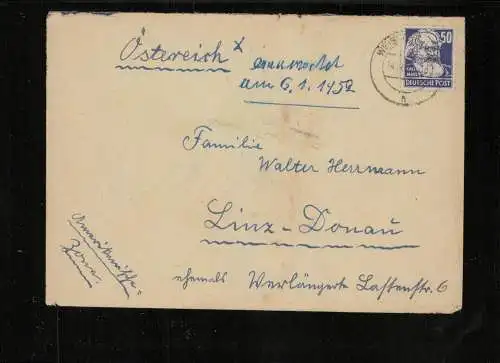 Östereich x
am 6.1.1952
50
DEUTSCHE POST
Familie
Walter Herrmann
Linz-Donau
Amerikanische
Zone.
ehemals Verlängerte Lastenstr. 6